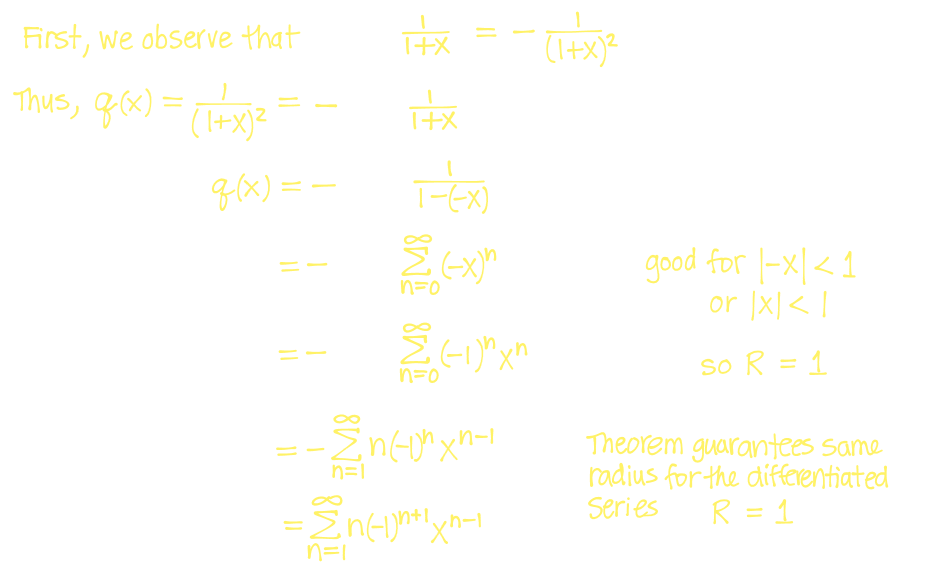 First, we observe that 1/(1+x) = - 1/(1+x)²
Thus, q(x) = 1/(1+x)² = - 1/(1+x)
q(x) = - 1/(1-(-x))
= - ∑_{n=0}^{∞} (-x)ⁿ good for |-x| < 1
or |x| < 1
= - ∑_{n=0}^{∞} (-1)ⁿ xⁿ so R = 1
= - ∑_{n=1}^{∞} n(-1)ⁿ xⁿ⁻¹
Theorem guarantees same
radius for the differentiated
Series R = 1
= ∑_{n=1}^{∞} n(-1)ⁿ⁺¹ xⁿ⁻¹